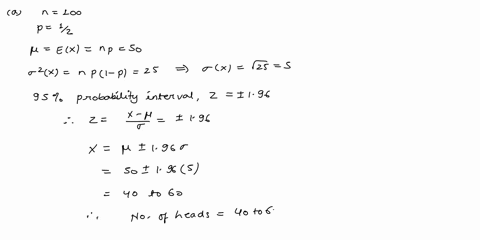 (a) n = 100
p = 1/2
μ = E(x) = np = 50
σ²(x) = n p(1-p) = 25 ⇒ σ(x) = √25 = 5
95% probability interval, Z = ±1.96
∴ Z = (x-μ)/σ = ±1.96
X = μ ± 1.96 σ
= 50 ± 1.96 (5)
= 40 to 60
∴ No. of heads = 40 to 6